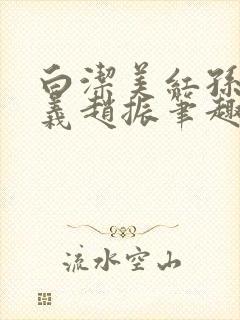 白潔美紅孫
義趙振筆趣
流水空山